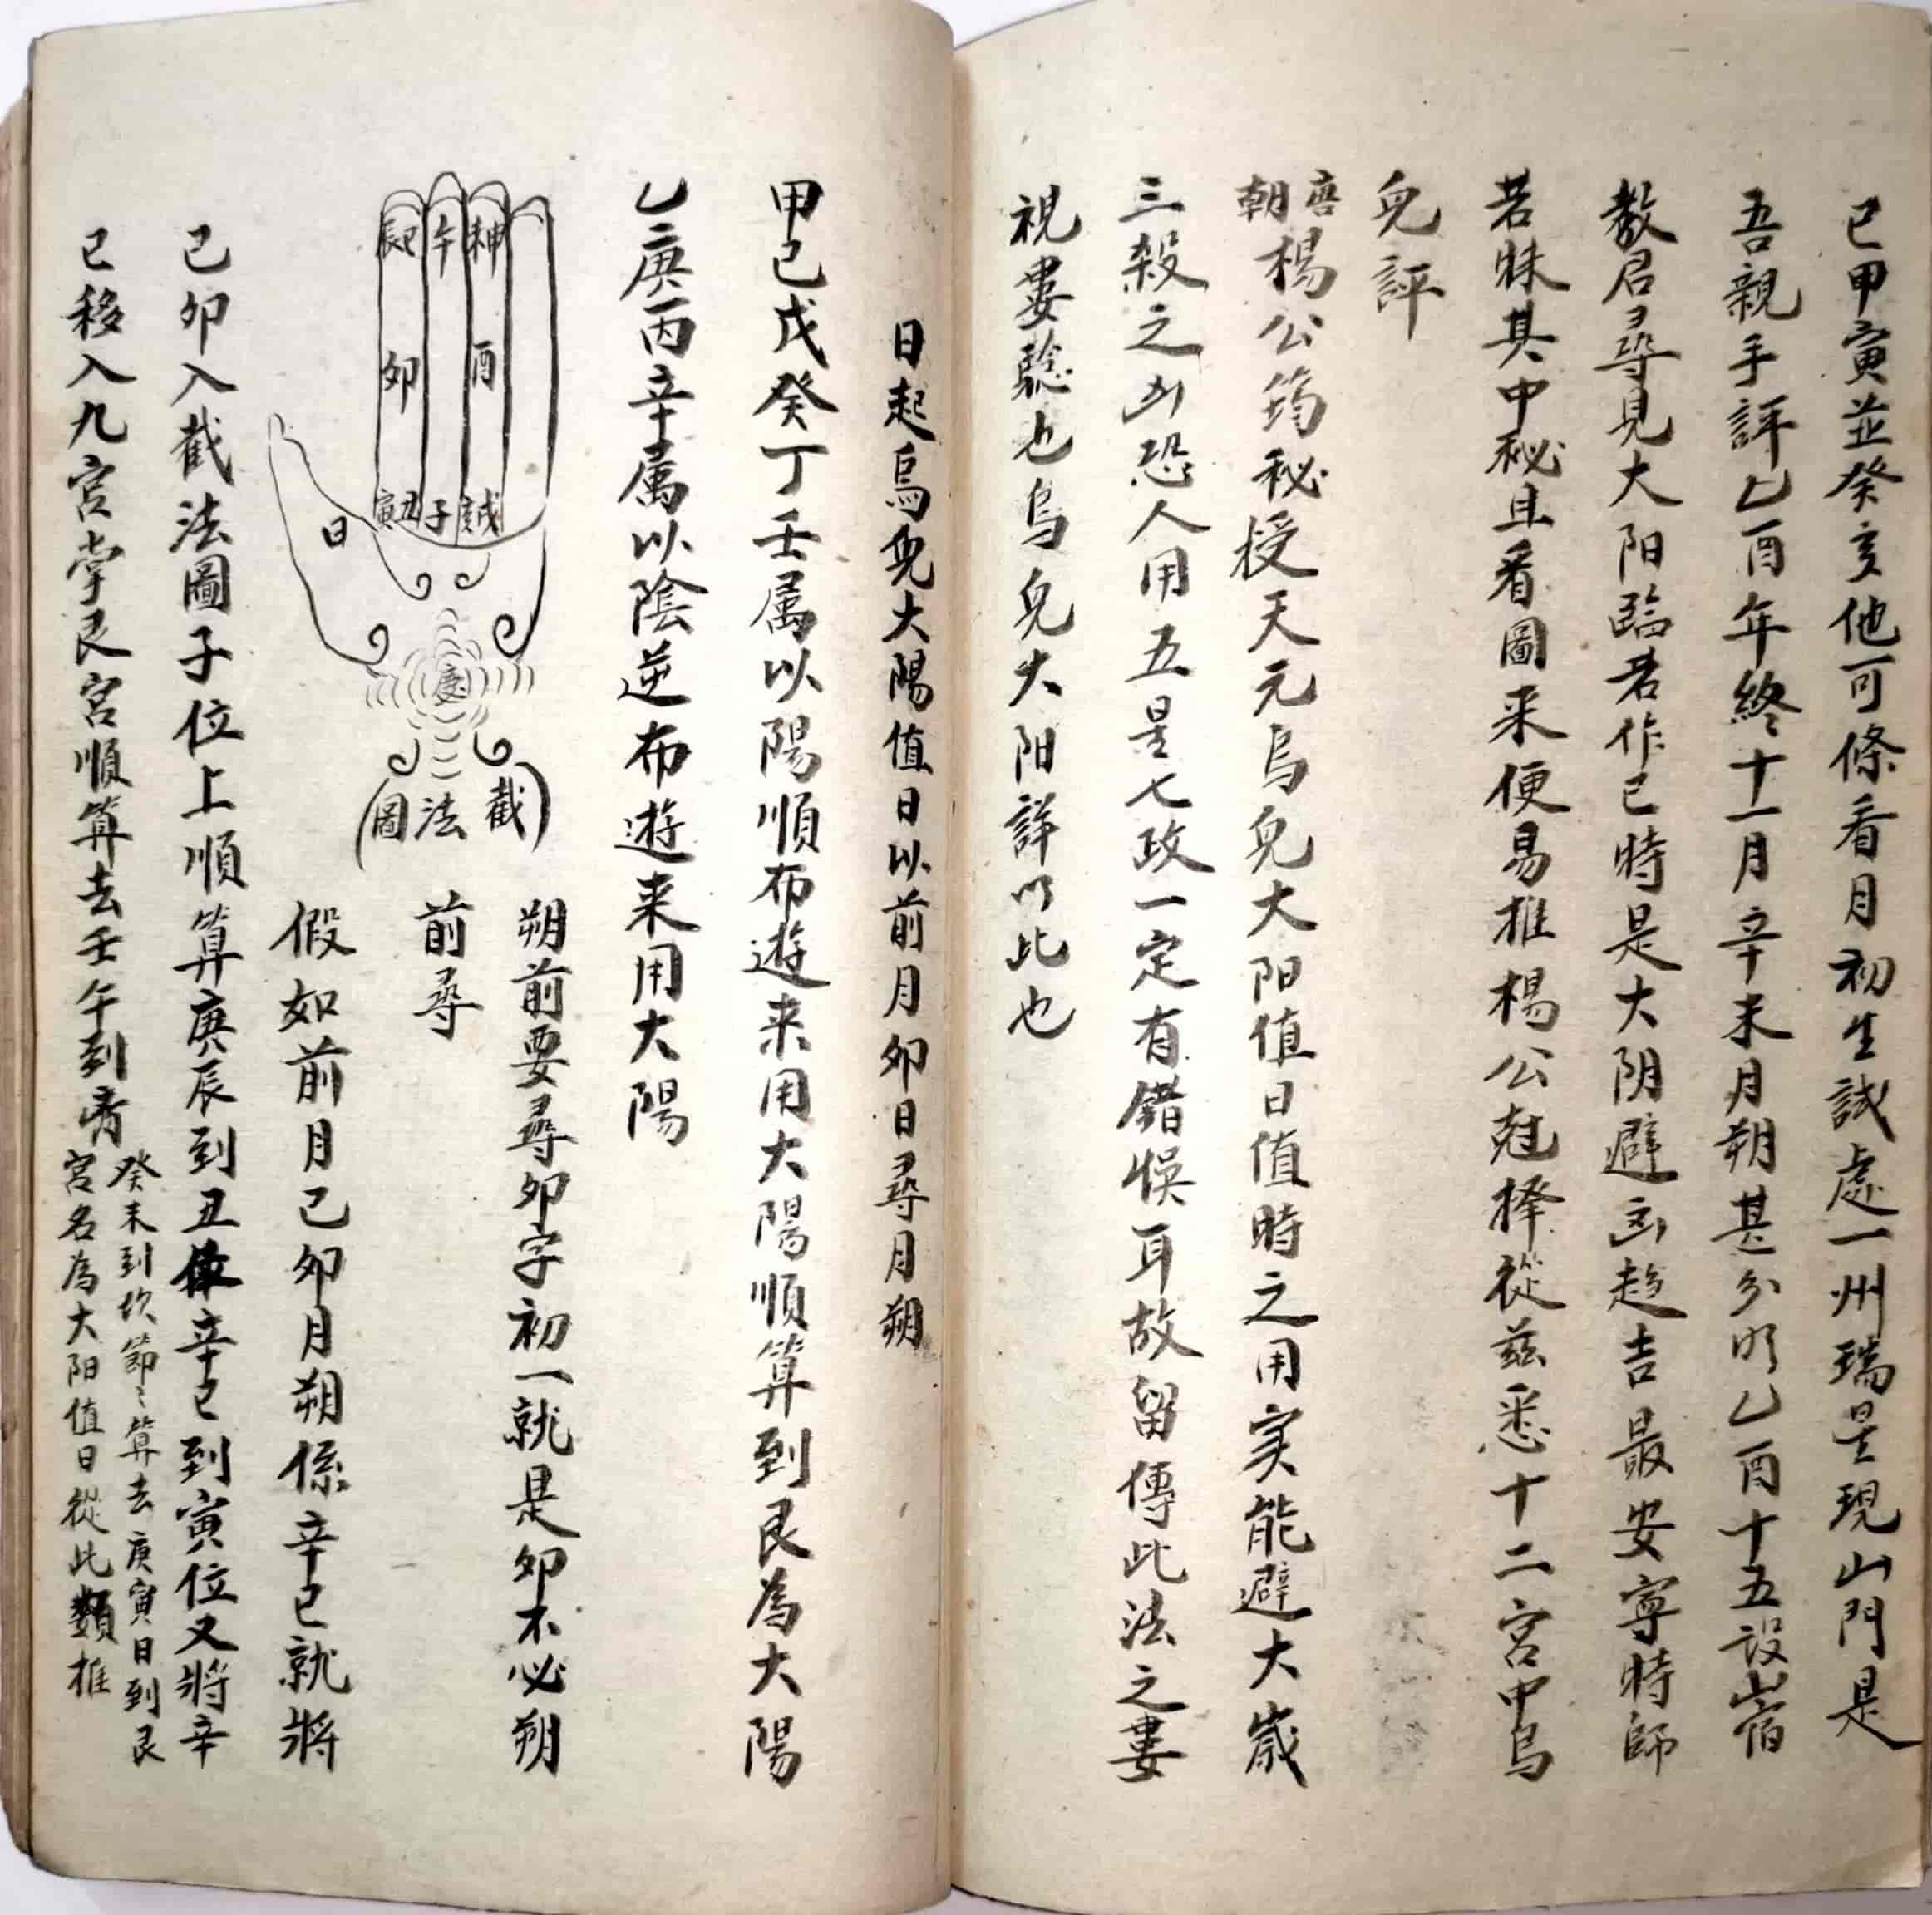 已甲寅並癸亥他可條看月初生誠處一州瑞是現山門是
吾親手評乙酉年終十一月辛未月朔甚分明乙酉十五設宿
教君尋見大阳臨若作已時是大阴避凶趋吉最安寧時師
若昧其中秘且看圖来便易推楊公尅擇從兹悉十二宮中烏
兔評
唐朝楊公筠秘授天元烏兔大阳值日值時之用实能避大歲
三殺之凶恐人用五星七政一定有錯悞耳故留傳此法之婁
視婁聽也烏兔大阳詳以此也
日起烏兔大陽值日以前月卯日尋月朔
甲己戊癸丁壬属以陽順布遊来用大陽順算到艮為大陽
乙庚丙辛属以陰逆布遊来用大陽
辰巳
午
未申
卯
酉
寅丑
子
亥戌
日
慶
(截法圖)
朔前要尋卯字初一就是卯不必朔
前尋
假如前月己卯月朔係辛巳就將
己卯入截法圖子位上順算庚辰到丑辛巳到寅位又將辛
巳移入九宮掌艮宮順算去壬午到离
癸未到坎節〻算去庚寅日到艮
宮名為大阳值日從此類推